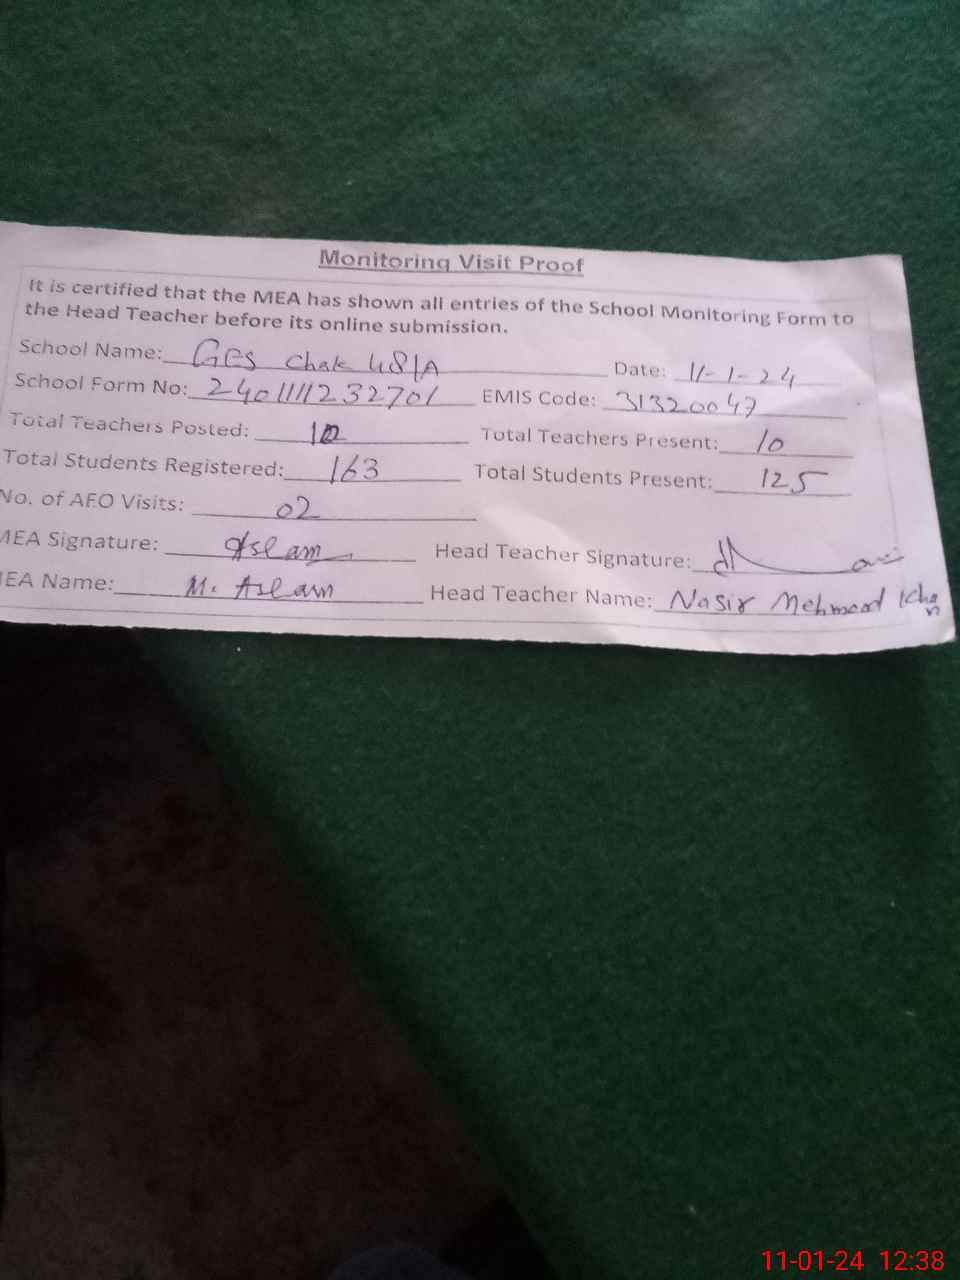 Monitoring Visit Proof
It is certified that the MEA has shown all entries of the School Monitoring Form to
the Head Teacher before its online submission.
School Name: GES Chak 48/A Date: 11-1-24
School Form No: EMIS Code: 31320047
Total Teachers Posted: 10 Total Teachers Present: 10
Total Students Registered: 163 Total Students Present: 125
No. of AEO Visits: 02
MEA Signature: Aslam Head Teacher Signature:
MEA Name: M. Aslam Head Teacher Name: Nasir Mehmood Khan
11-01-24 12:38